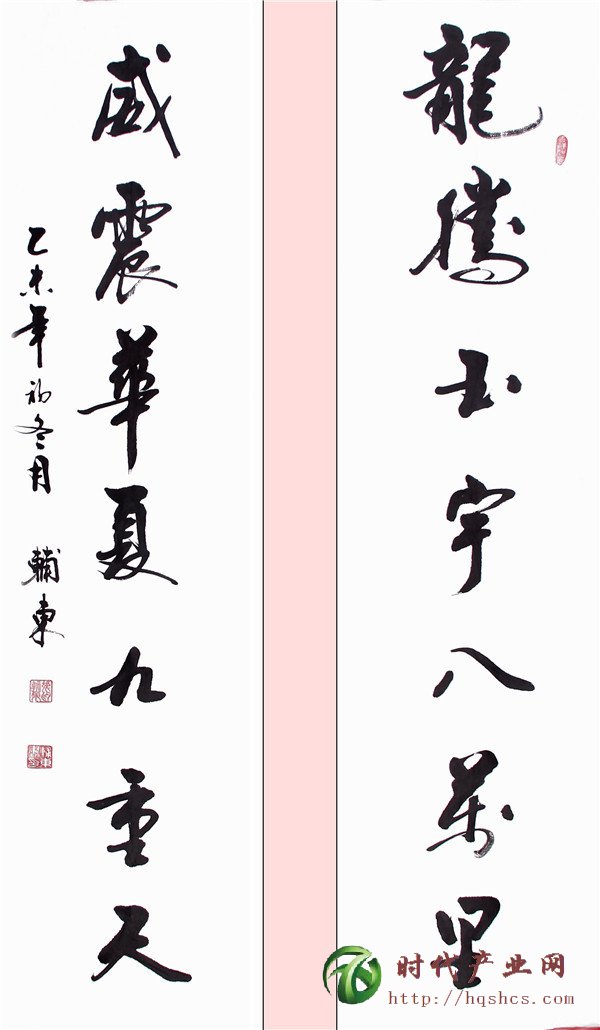 龍騰玉宇八萬里
威震華夏九重天
乙未年初冬月 輔東
时代产业网
http://hqshcs.com